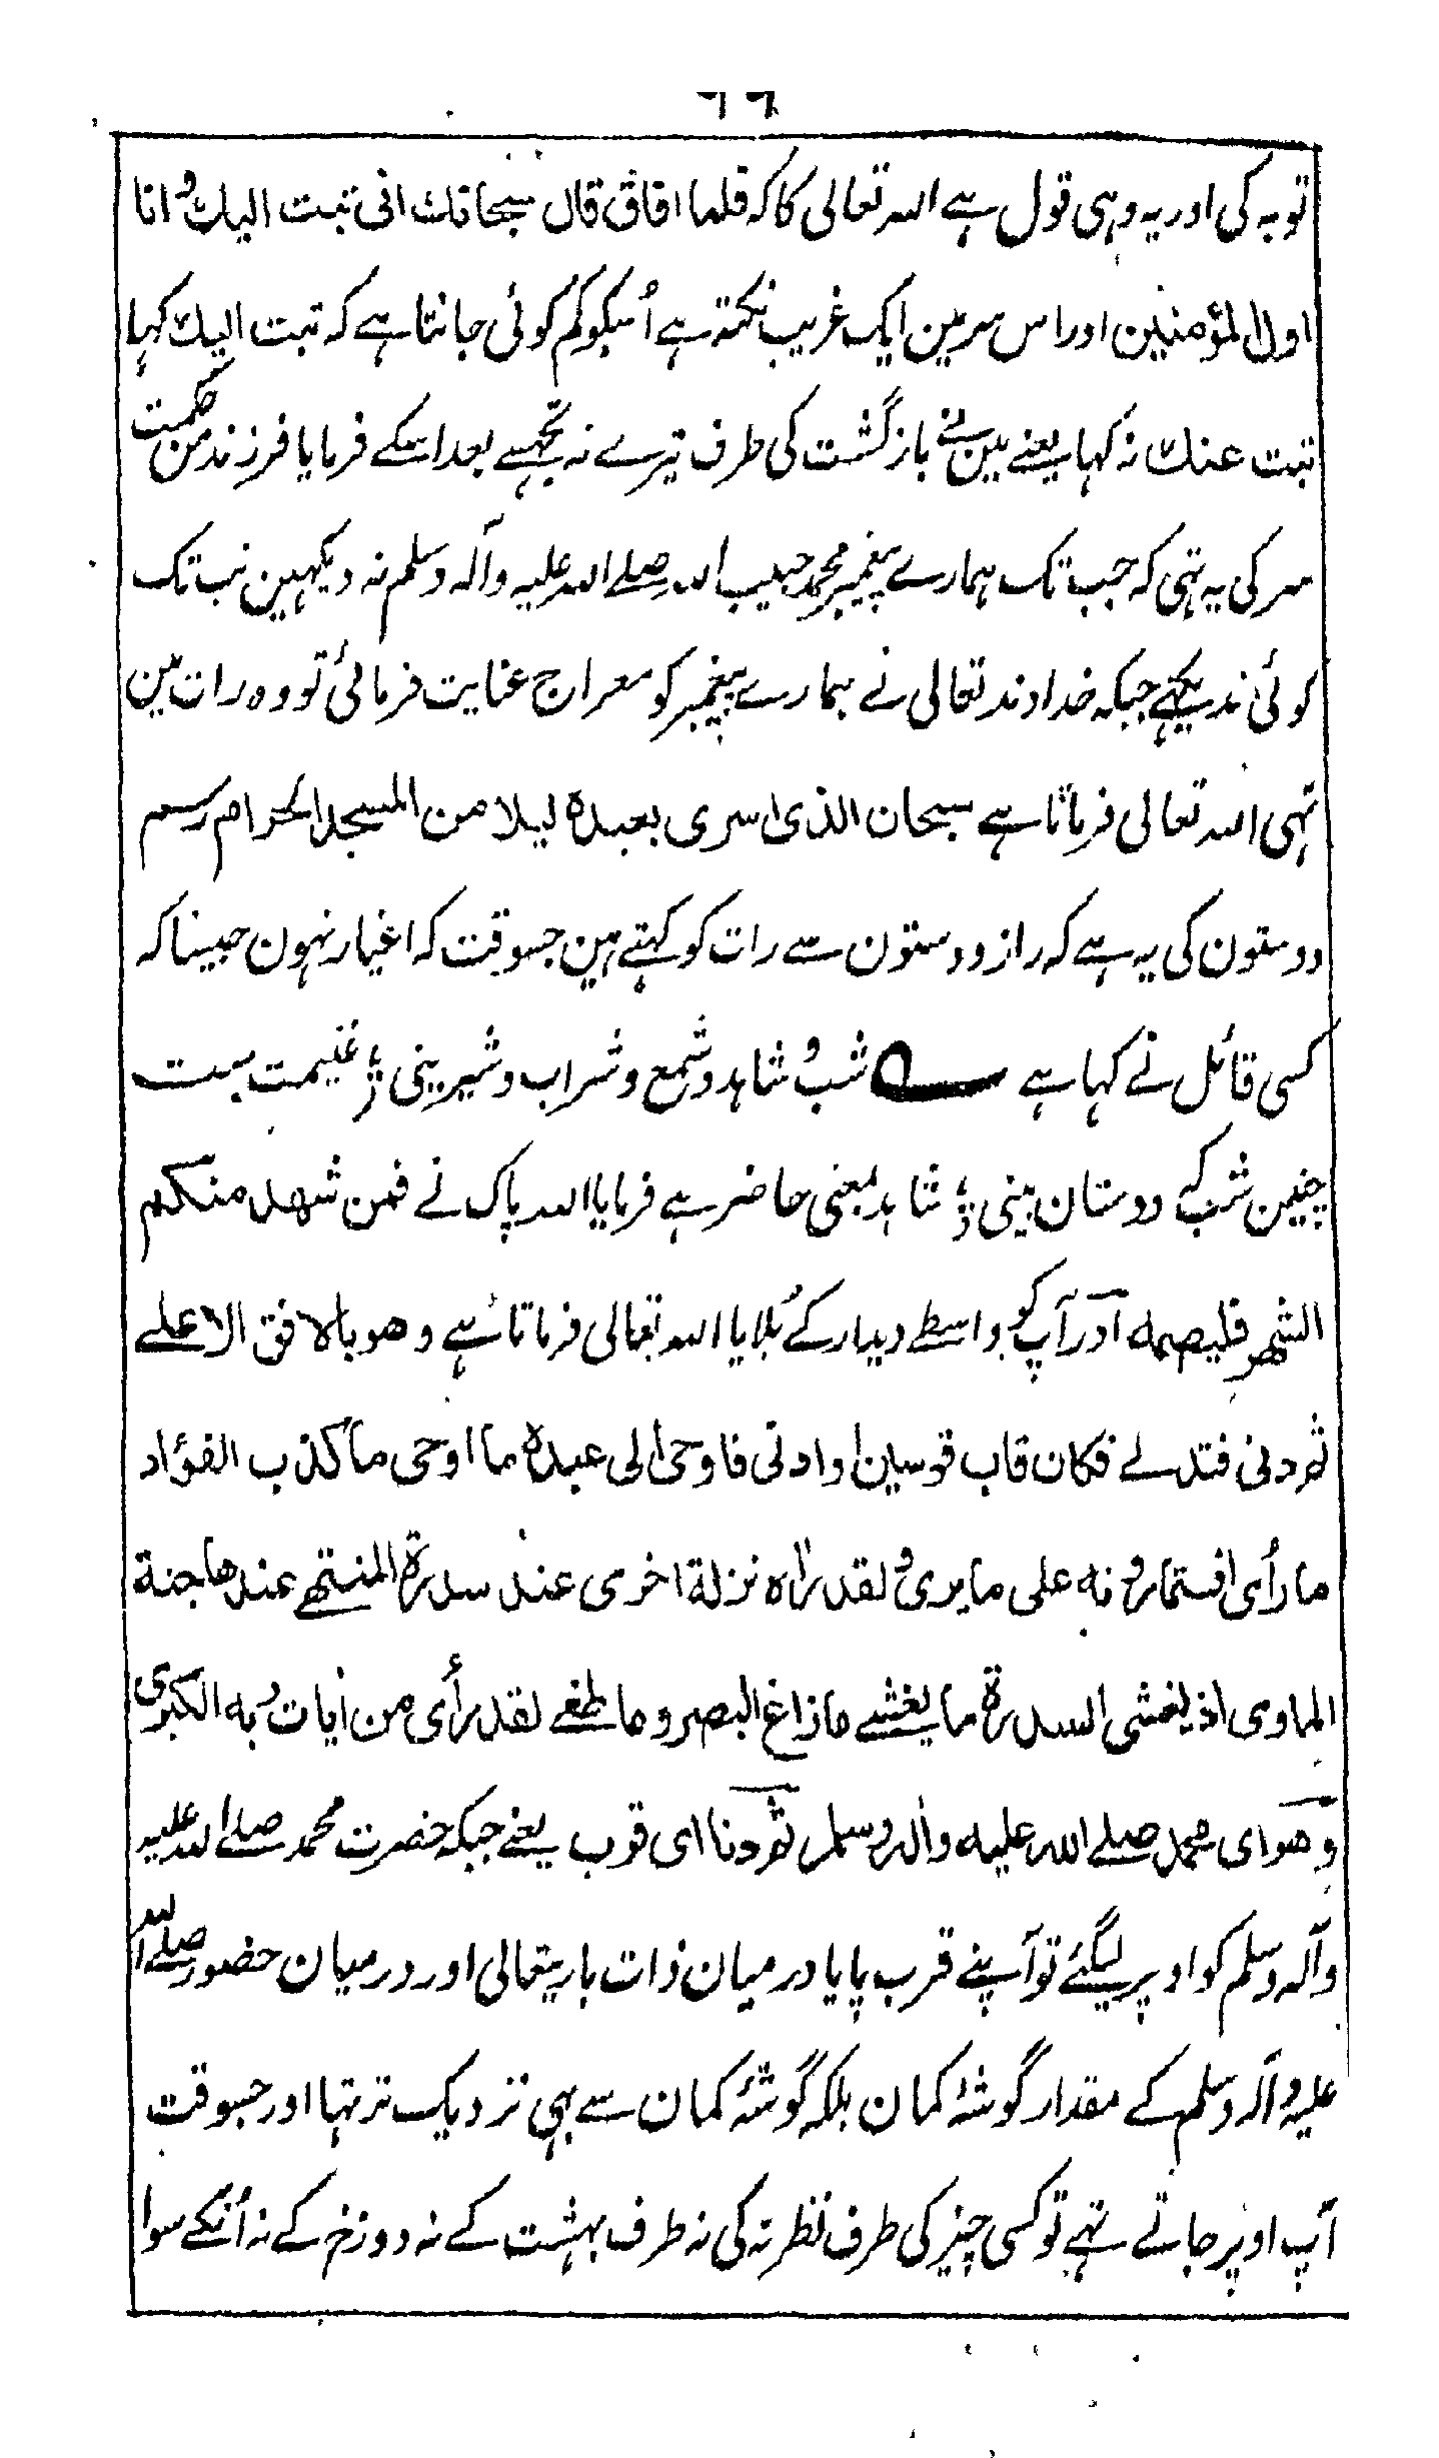 توبہ کی اور یہ وہی قول ہے اللہ تعالی کا کہ فلما افاق قال سبحانك انی تبت الیك و انا
اول المؤمنین اور اس سر مین ایک غریب نکتہ ہے اُسکو کم کوئی جانتا ہے کہ تبت الیك کہا
تبت عنك نہ کہا یعنے مین نے بازگشت کی طرف تیرے نہ تجہسے بعد اسکے فرمایا فرزند من حکمت
سر کی یہ تہی کہ جب تک ہمارے پیغمبر محمد حبیب اللہ صلے اللہ علیہ وآلہ وسلم نہ دیکہین تب تک
کوئی ندیکہے جبکہ خداوند تعالی نے ہمارے پیغمبر کو معراج عنایت فرمائی تو وہ رات مین
تہی اللہ تعالی فرماتا ہے سبحان الذی اسری بعبدہ لیلا من المسجد الحرام رسم
دوستون کی یہ ہے کہ راز دوستون سے رات کو کہتے ہین جسوقت کہ اغیار نہون جیسا کہ
کسی قائل نے کہا ہے ؎ شب و شاہد و شمع و شراب و شیرینی ؛ غنیمت ست
چنین شب کہ دوستان بینی ؛ شاہد بمعنی حاضر ہے فرمایا اللہ پاک نے فمن شهد منکم
الشهر فلیصمه اور آپ کو واسطے دیدار کے بُلایا اللہ تعالی فرماتا ہے وهو بالافق الاعلے
ثم دنی فتدلے فکان قاب قوسین او ادنی فاوحی الی عبدہ ما اوحی ما کذب الفؤاد
ما رأی افتمارونه علی ما یری و لقد راٰہ نزلة اخری عند سدرة المنتهے عندها جنة
الماوی اذ یغشی السدرة ما یغشے ما زاغ البصر و ما طغے لقد رأی من اٰیات ربه الکبری
و هو ای محمد صلے الله علیه واٰله وسلم ثم دنا ای قرب یعنے جبکہ حضرت محمد صلے اللہ علیہ
وآلہ وسلم کو اوپر لیگئے تو آپنے قرب پایا درمیان ذات باریتعالی اور درمیان حضور صلے اللہ
علیہ وآلہ وسلم کے مقدار گوشۂ کمان بلکہ گوشۂ کمان سے بہی نزدیک تر تہا اور جسوقت
آپ اوپر جاتے تہے تو کسی چیز کی طرف نظر نہ کی نہ طرف بہشت کے نہ دوزخ کے نہ اُنکے سوا